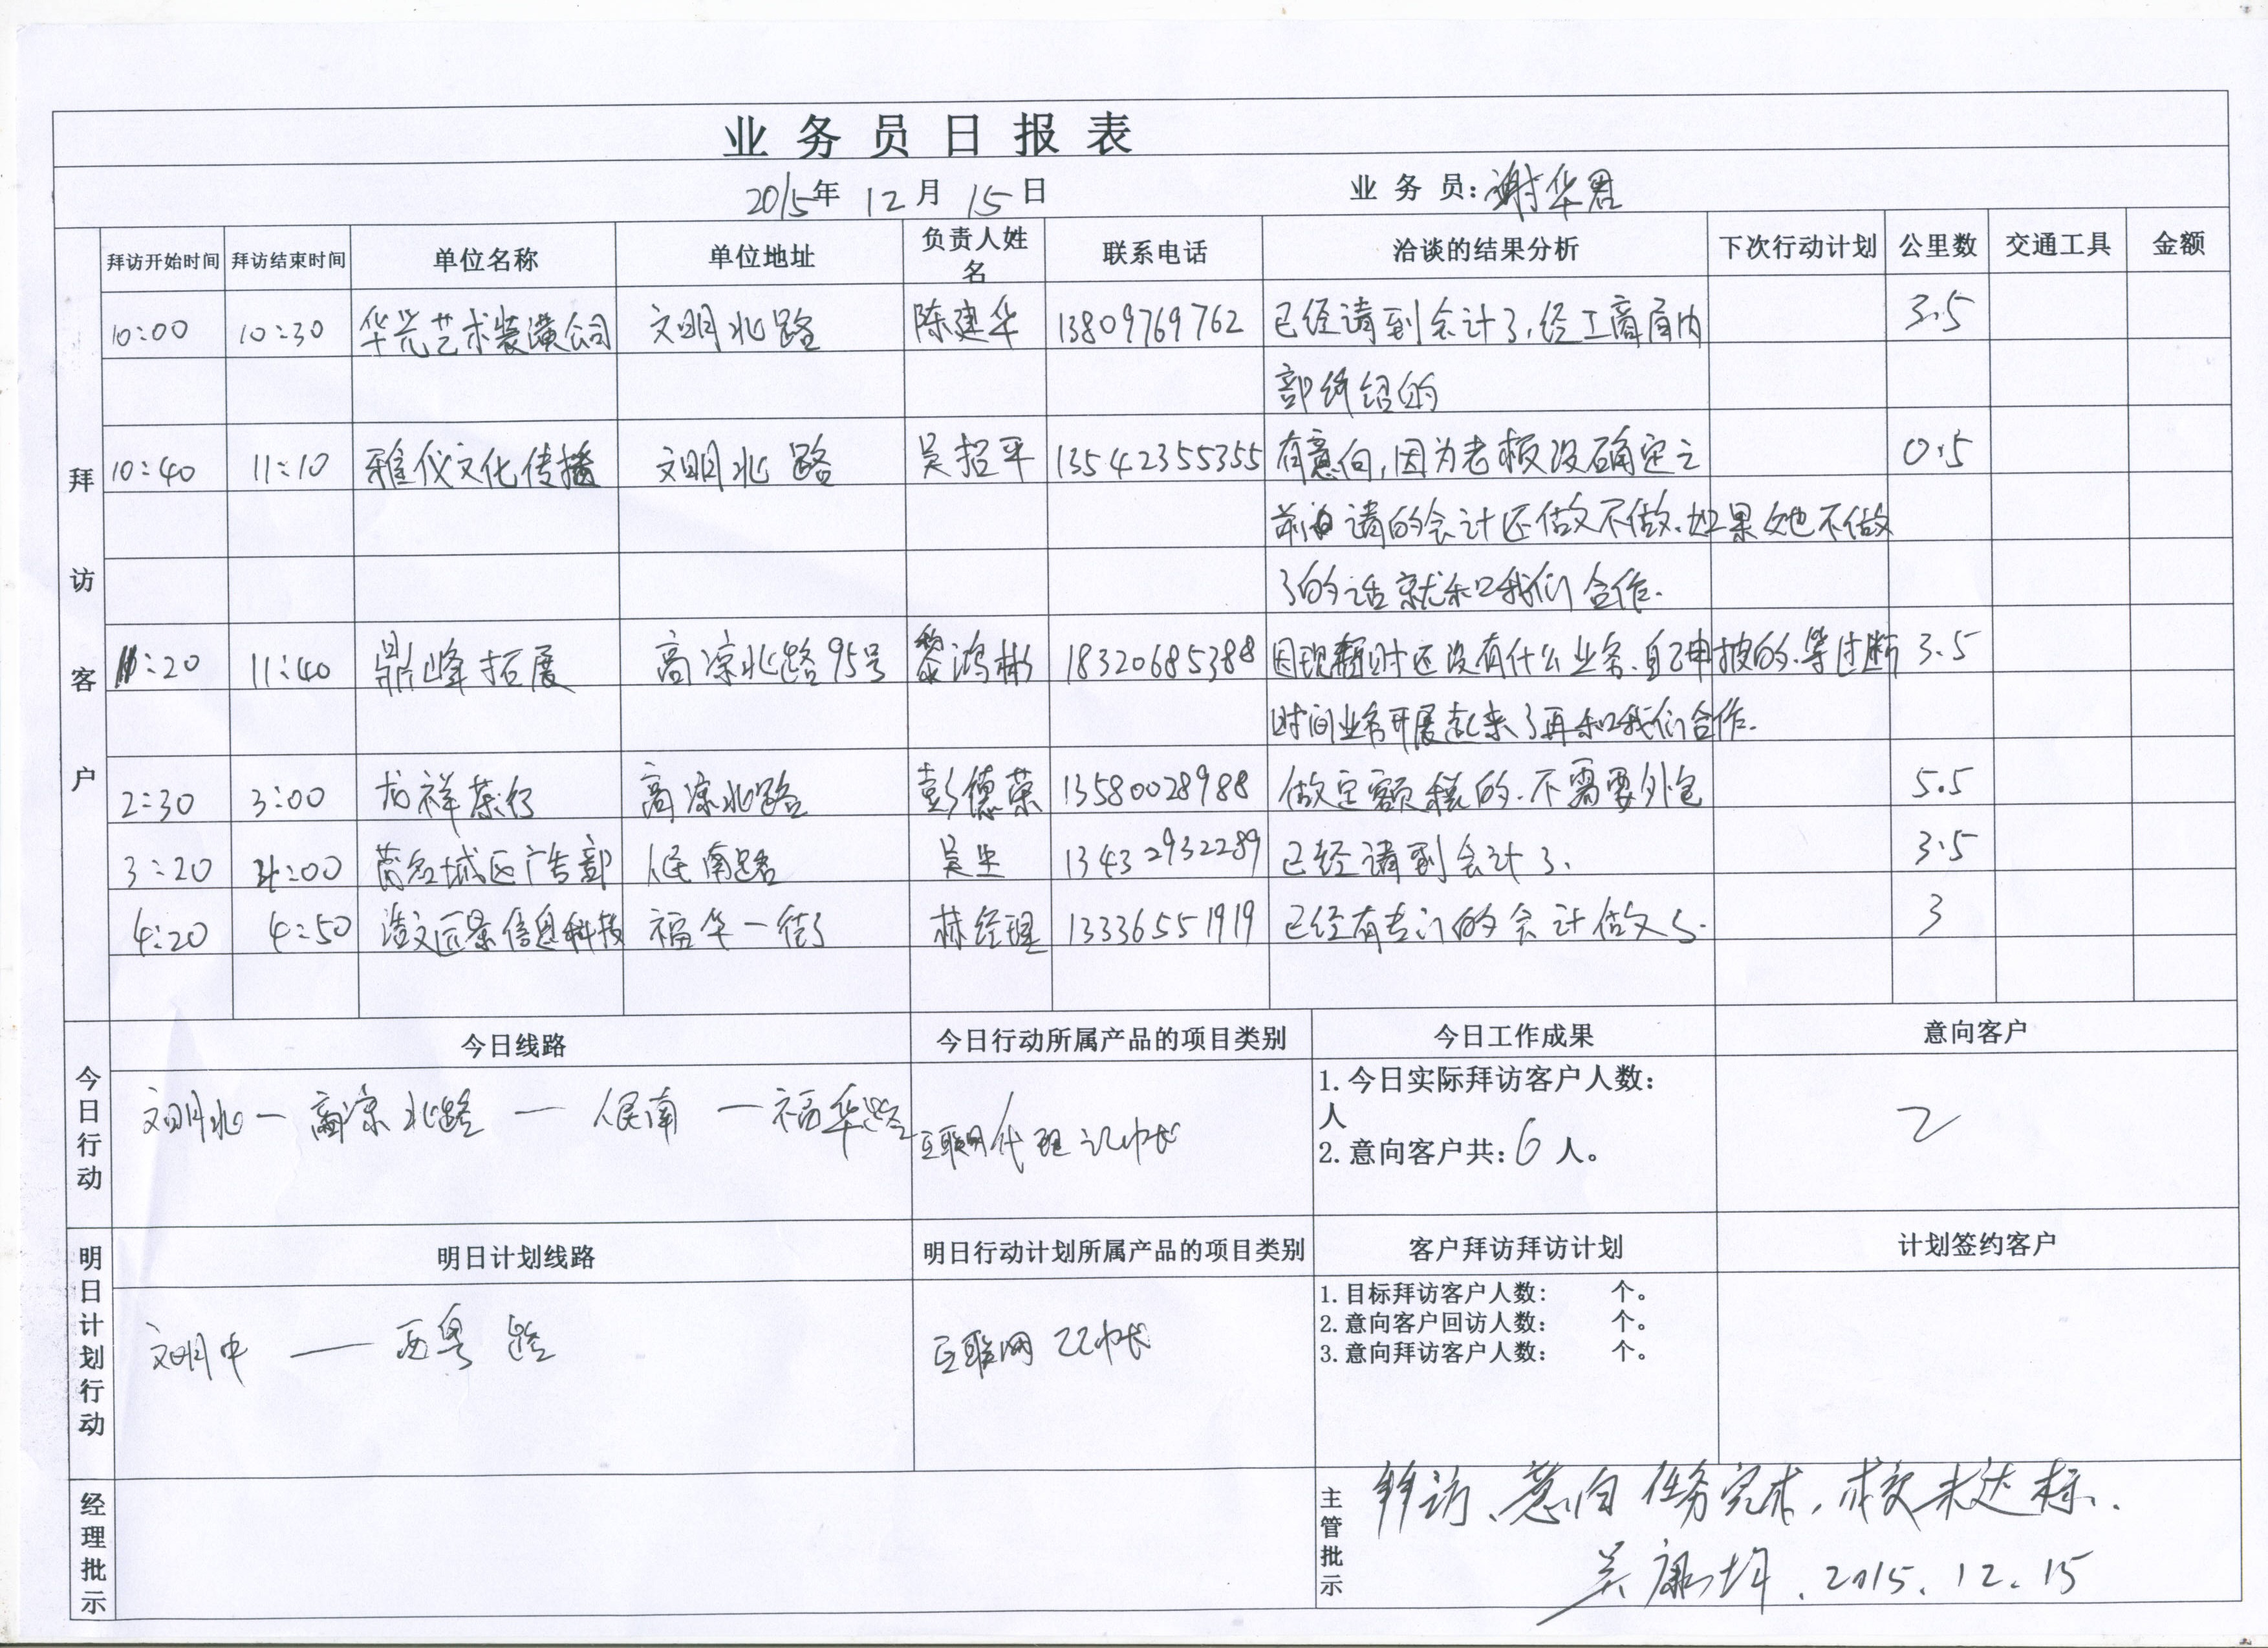 业务员日报表
2015年 12月 15日 业务员:谢华君
拜访客户
拜访开始时间 拜访结束时间 单位名称 单位地址 负责人姓名 联系电话 洽谈的结果分析 下次行动计划 公里数 交通工具 金额
10:00 10:30 华光艺术装潢公司 文明北路 陈建华 13809769762 已经请到会计了,经工商局内 3.5
部介绍的
10:40 11:10 雅仪文化传播 文明北路 吴招平 13542355355 有意向,因为老板没确定之 0.5
前请的会计还做不做.如果她不做
了的话就和我们合作.
11:20 11:40 鼎峰拓展 高凉北路95号 黎鸿彬 18320685388 因现暂时还没有什么业务.自己申报的.等过断 3.5
时间业务开展起来了再和我们合作.
2:30 3:00 龙祥茶行 高凉北路 彭德荣 13580028988 做定额税的.不需要外包 5.5
3:20 4:00 茂名城区广告部 人民南路 吴生 13432932289 已经请到会计了. 3.5
4:20 4:50 浩文远景信息科技 福华一街 林经理 13336551919 已经有专门的会计做了. 3
今日行动
今日线路 今日行动所属产品的项目类别 今日工作成果 意向客户
文明北—高凉北路—人民南—福华路 互联网代理记帐
1.今日实际拜访客户人数:
人
2.意向客户共:6 人。
2
明日计划行动
明日计划线路 明日行动计划所属产品的项目类别 客户拜访拜访计划 计划签约客户
文明中——西粤路 互联网记帐
1.目标拜访客户人数: 个。
2.意向客户回访人数: 个。
3.意向拜访客户人数: 个。
经理批示
主管批示
拜访、意向任务完成,成交未达标.
吴康 .2015.12.15